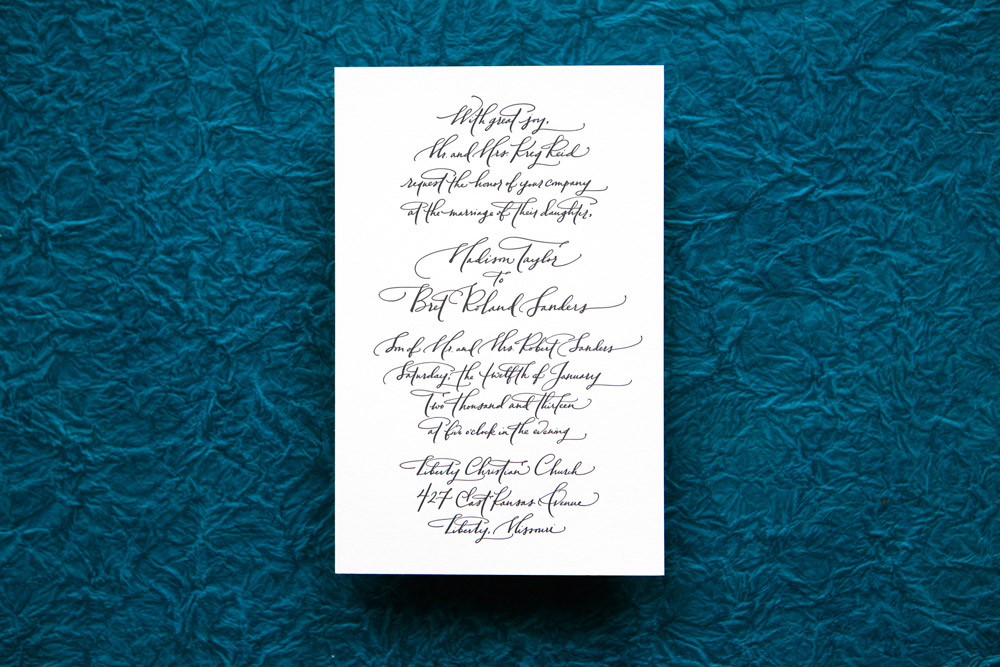 With great joy,
Mr. and Mrs. Kreg Reid
request the honor of your company
at the marriage of their daughter,
Madison Taylor
to
Bret Roland Sanders
Son of Mr. and Mrs. Robert Sanders
Saturday, the twelfth of January
Two thousand and thirteen
at five o'clock in the evening
Liberty Christian Church
427 East Kansas Avenue
Liberty, Missouri